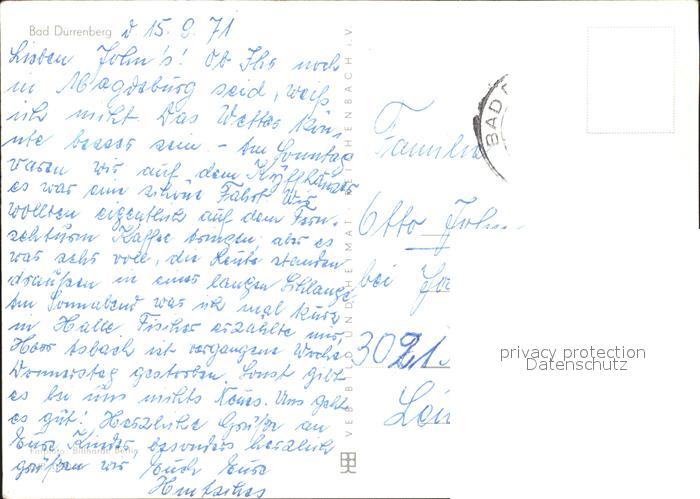 Bad Dürrenberg d 15.9.71
Lieben John's! Ob Ihr noch
in Magdeburg seid, weiß
ich nicht. Das Wetter kön-
nte besser sein - Am Sonntag
waren wir auf dem Kyffhäuser
es war eine schöne Fahrt. Wir
wollten eigentlich auf dem Fern-
sehturm Kaffee trinken, aber es
war sehr voll, die Leute standen
draußen in einer langen Schlange
Am Sonnabend war ich mal kurz
in Halle. Fischer erzählte mir,
Herr Asbach ist vergangene Woche
Donnerstag gestorben. Sonst gibt
es bei uns nichts Neues. Uns geht
es gut! Herzliche Grüße an
Eure Kinder besonders herzlich
Foto: Billhardt Berlin
grüßen wir Euch Eure
VEB BILD UND HEIMAT REICHENBACH I.V.
BAD D
Familie
Otto John
bei
3021
privacy protection
Datenschutz